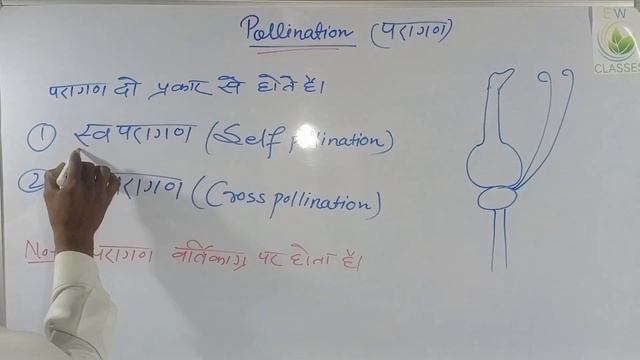 Pollination (परागण)
EW
CLASSES
परागण दो प्रकार से होते है।
① स्व परागण (Self pollination)
② परागण (Cross pollination)
परागण वर्तिकाग्र पर होता है।